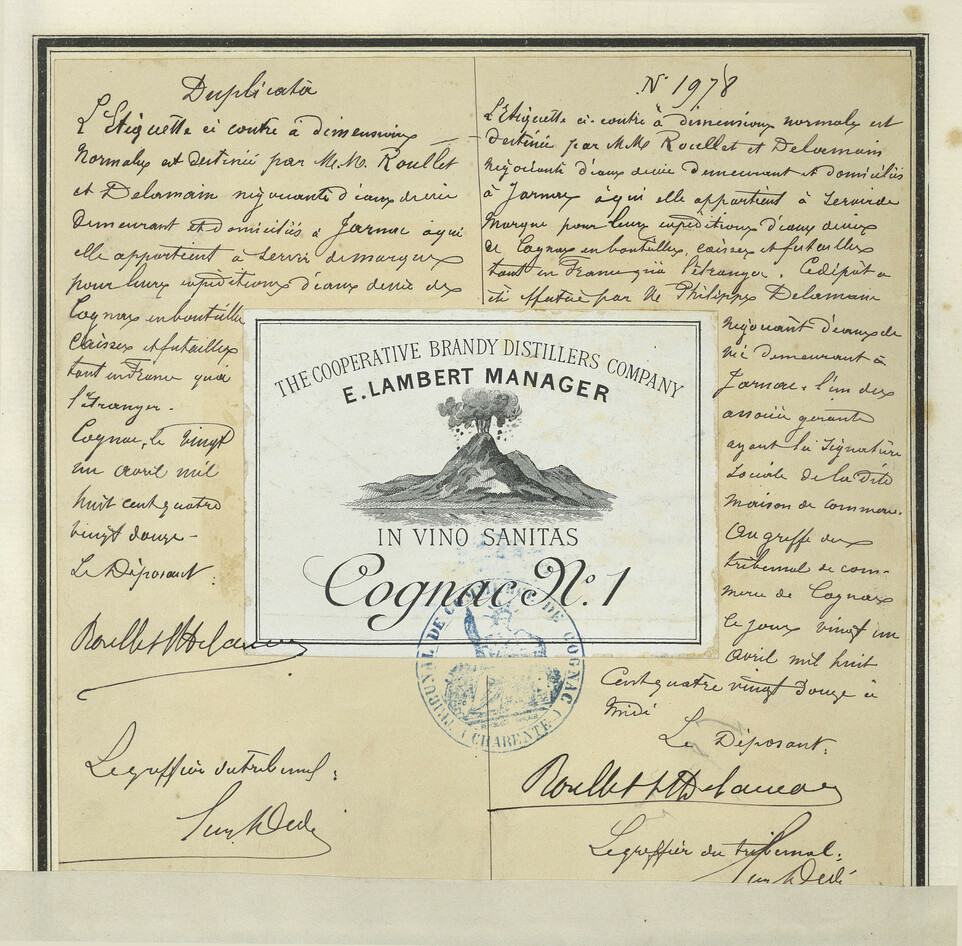 Duplicata
L'Etiquette ci contre à dimensions
normales est destinée par M.M. Roullet
et Delamain négociants d'eaux de vie
demeurant et domiciliés à Jarnac à qui
elle appartient à servir de marque
pour leurs expéditions d'eaux de vie de
Cognac en bouteilles
Caisses et futailles
tant en France qu'à
l'étranger.
Cognac, le vingt
un avril mil
huit cent quatre
vingt douze -
Le Déposant:
Roullet & Delamain
Le greffier du tribunal:
N° 1978
L'Etiquette ci-contre à dimensions normales est
destinée par M.M. Roullet et Delamain
négociants d'eaux de vie demeurant et domiciliés
à Jarnac à qui elle appartient à servir de
Marque pour leurs expéditions d'eaux de vie
de Cognac en bouteilles, caisses et futailles
tant en France qu'à l'étranger. Ce dépôt a
été effectué par M. Philippe Delamain
négociant d'eaux de
vie demeurant à
Jarnac, l'un des
associés gérants
ayant la signature
sociale de la dite
maison de commerce.
Au greffe du
tribunal de com-
merce de Cognac
le jour vingt un
avril mil huit
Cent quatre vingt douze à
midi
Le Déposant:
Roullet & Delamain
Le greffier du tribunal:
THE COOPERATIVE BRANDY DISTILLERS COMPANY
E. LAMBERT MANAGER
IN VINO SANITAS
Cognac N° 1
TRIBUNAL DE COMMERCE DE COGNAC
(CHARENTE)